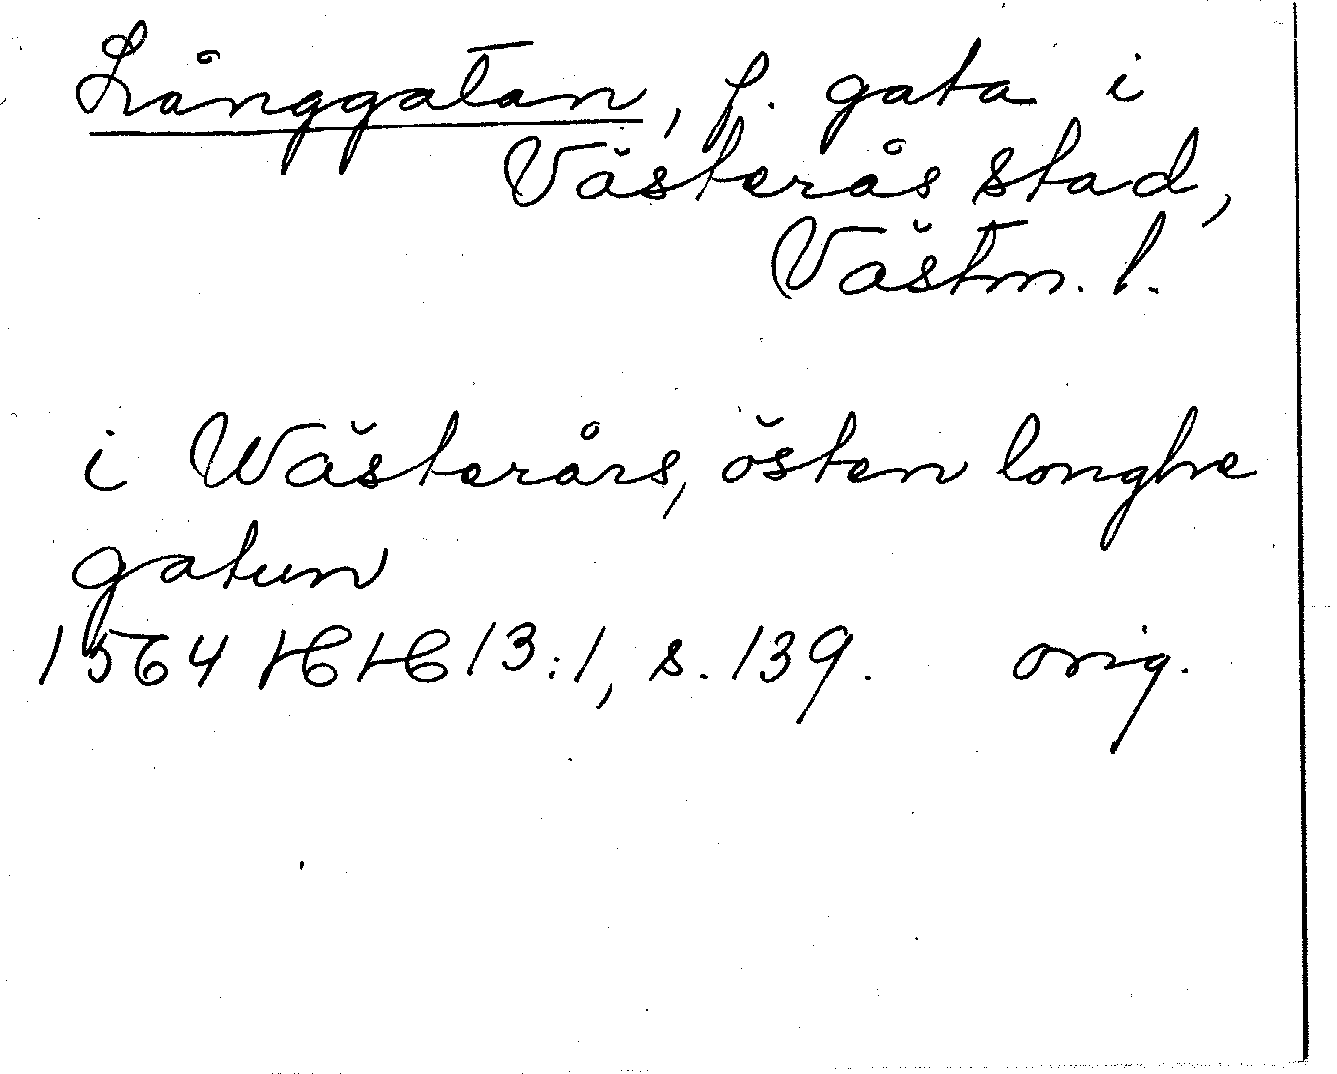 Långgatan, f. gata i
Västerås stad,
Västm. l.
i Wästerårs, östen longhe
gatun
1564 HH 13:1, s. 139. orig.